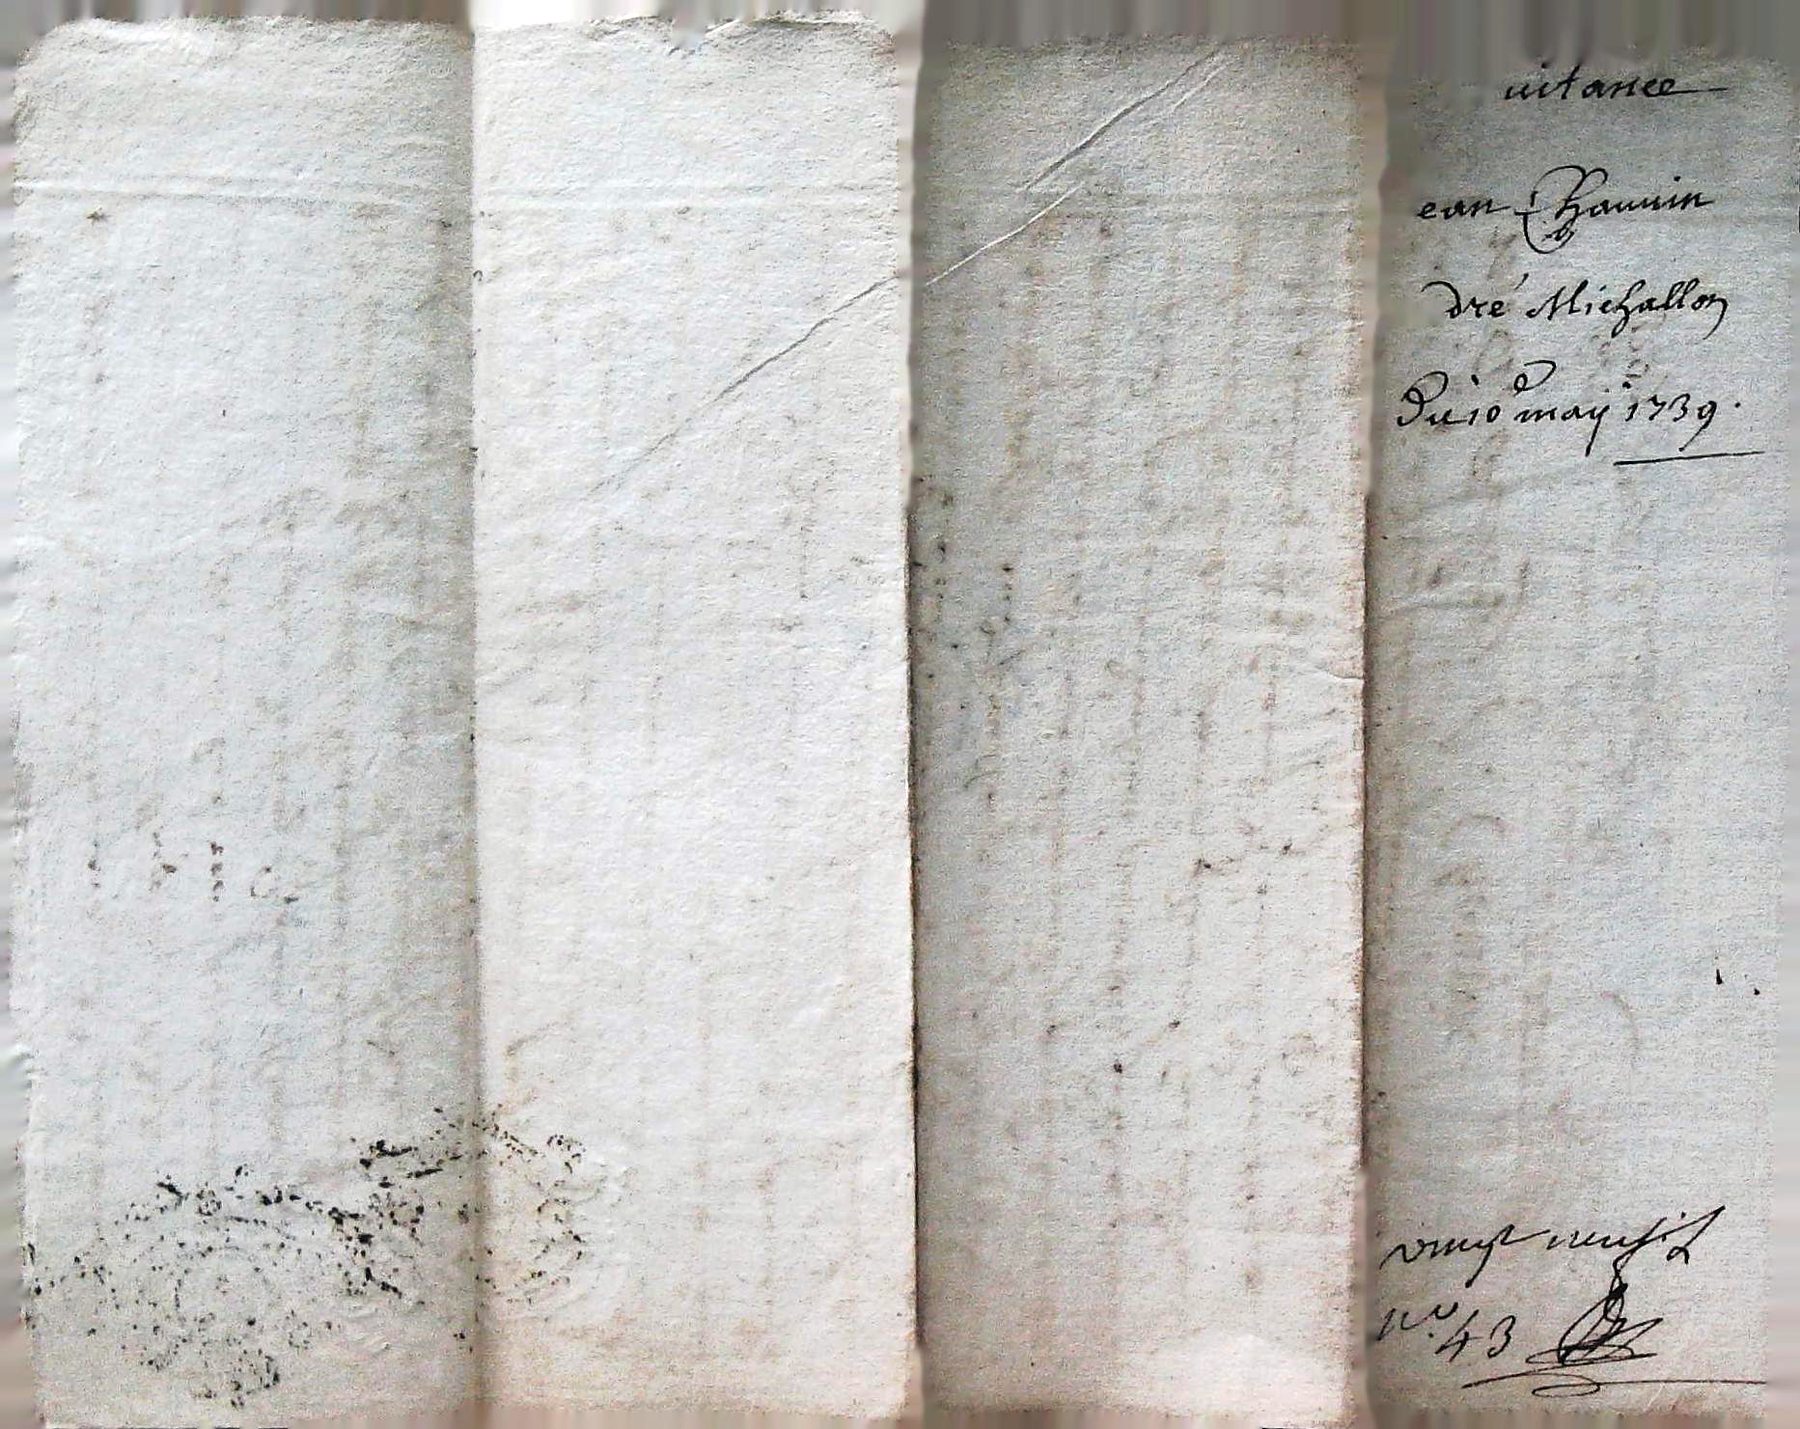 uitance
ean Chauuin
dré Michallon
Du 10e may 1739.
vingt neufi.
No. 43